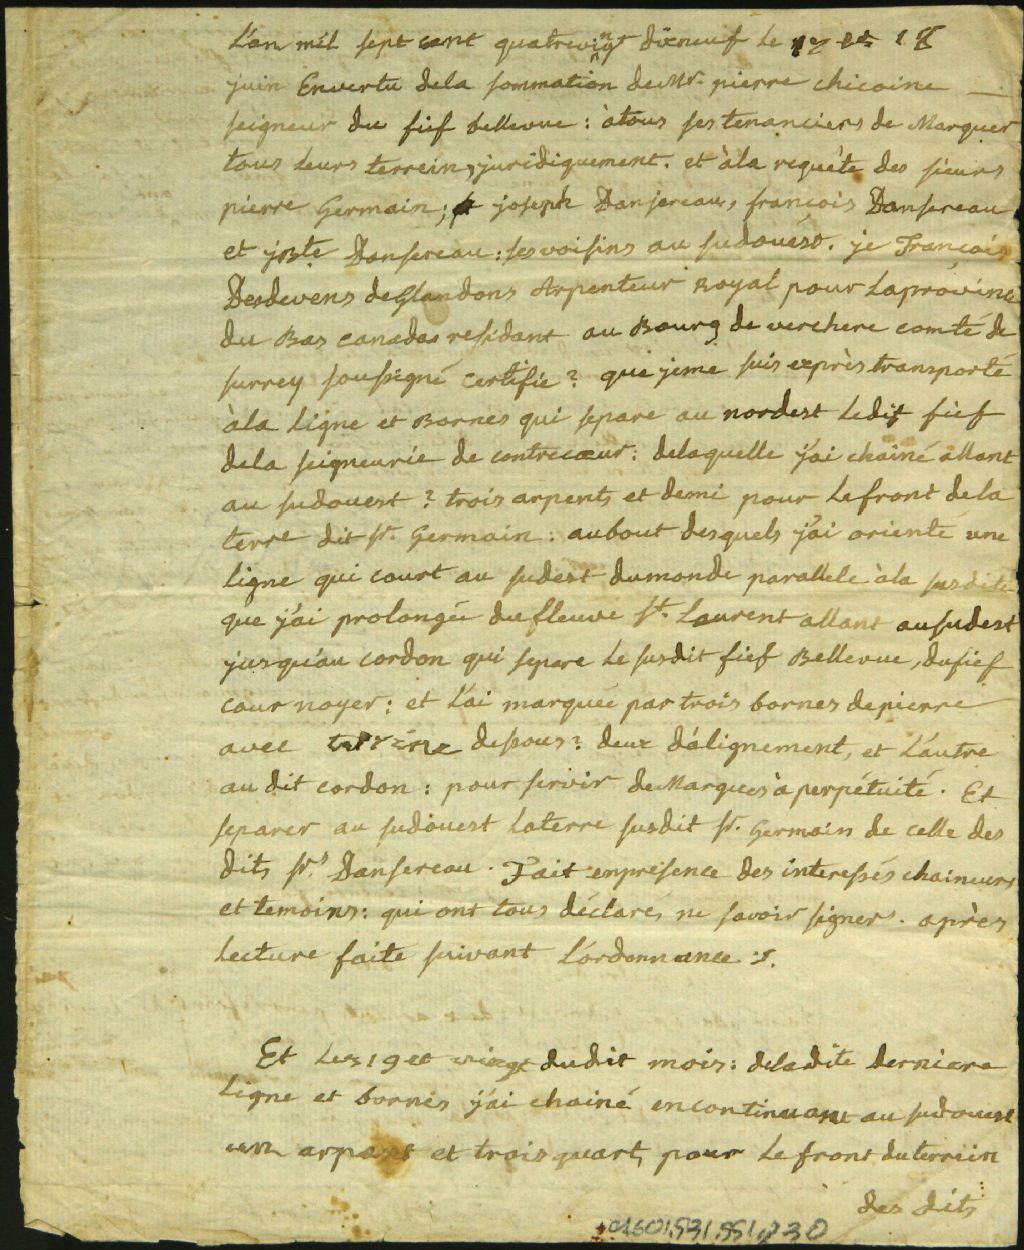 L'an mil sept cant quatrevingt dixneuf le 18
juin Envertu dela sommation de Mr. pierre chicoine
seigneur du fief bellevue : àtous ses tenanciers de Marquer
tous leurs terrein, juridiquement. et àla requête des sieurs
pierre Germain; joseph Dansereau, françois Dansereau
et jste Dansereau : ses voisins au sudouést. je François
Desdevens deGlandons Arpenteur Royal pour Laprovince
du Bas canadas residant au Bourg de verchere comté de
surrey soussigné certifie ? que jeme suis exprès transporté
àla ligne et Bornes qui separe au nordest Ledit fief
dela seigneurie de contrecœur : delaquelle j'ai chaîné allant
au sudouest ? trois arpents et demi pour Lefront dela
terre dit sr. Germain : aubout desquels j'ai orienté une
ligne qui court au sudest dumonde parallele àla susdite
que j'ai prolongée dufleuve st. Laurent allant ausudest
jusqu'au cordon qui separe Le susdit fief Bellevue, dufief
cournoyer : et L'ai marquée par trois bornes depierre
avec dessous ? deux d'alignement, et L'autre
audit cordon : pour servir deMarques à perpétuité. Et
separer au sudouest Laterre susdit sr. Germain de celle des
dits srs Dansereau. Fait enprésence des interessés chaineurs
et temoins : qui ont tous déclarés ne savoir signer. après
Lecture faite suivant L'ordonnance :/.
Et Les 19 et vingt dudit mois : deladite derniere
Ligne et bornes j'ai chainé encontinuant au sudouest
un arpent et trois quart, pour Lefront duterrein
des dits